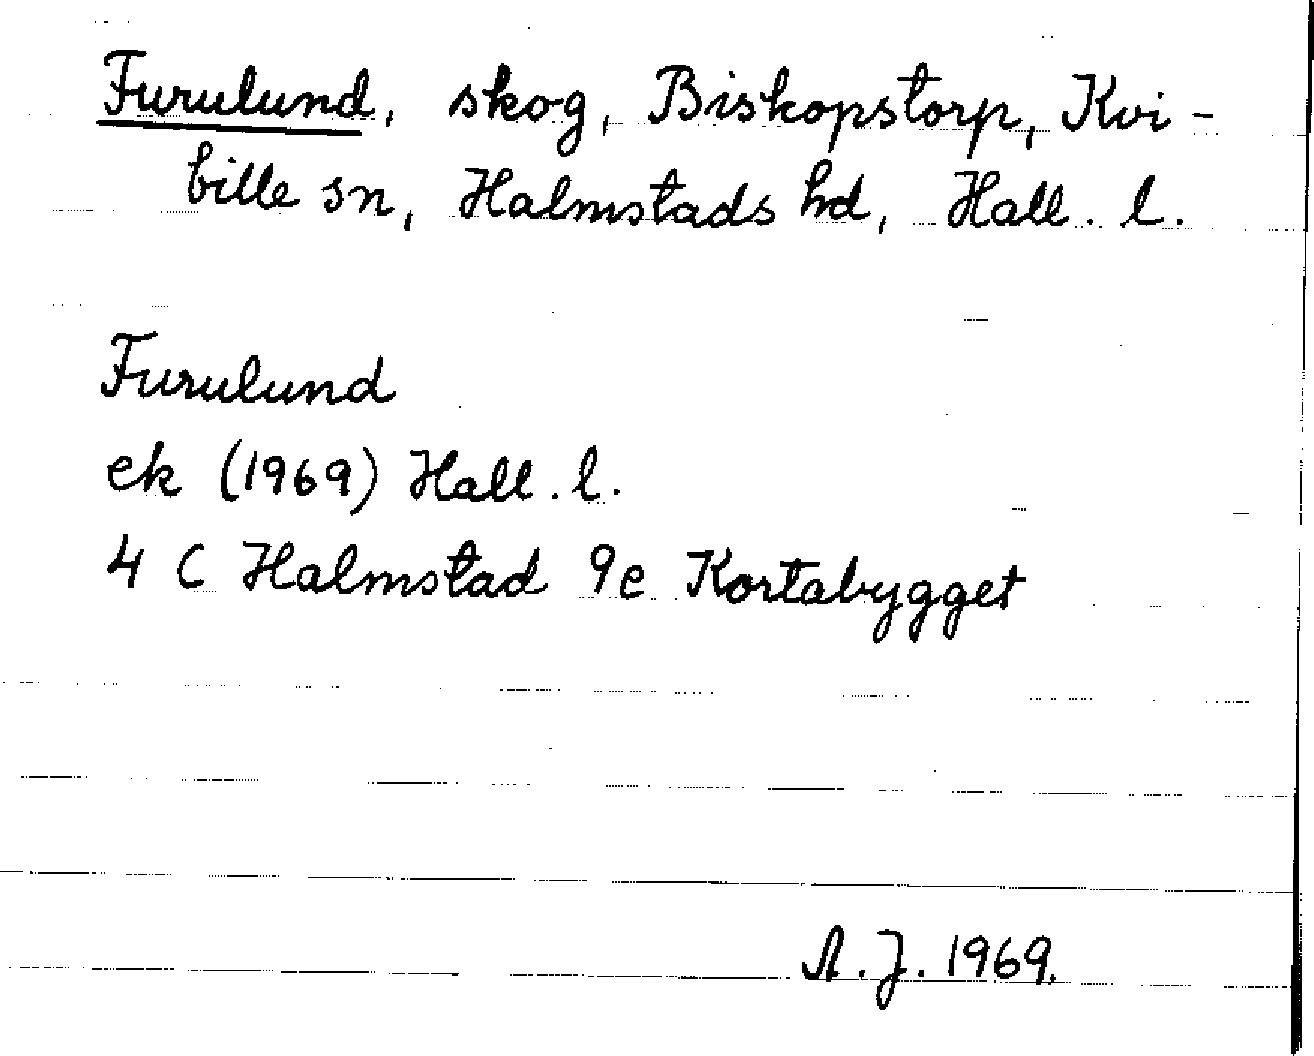 Furulund, skog, Biskopstorp, Kvi-
bille sn, Halmstads hd, Hall. l.
Furulund
ek (1969) Hall. l.
4 C Halmstad 9e Kortabygget
A. J. 1969.